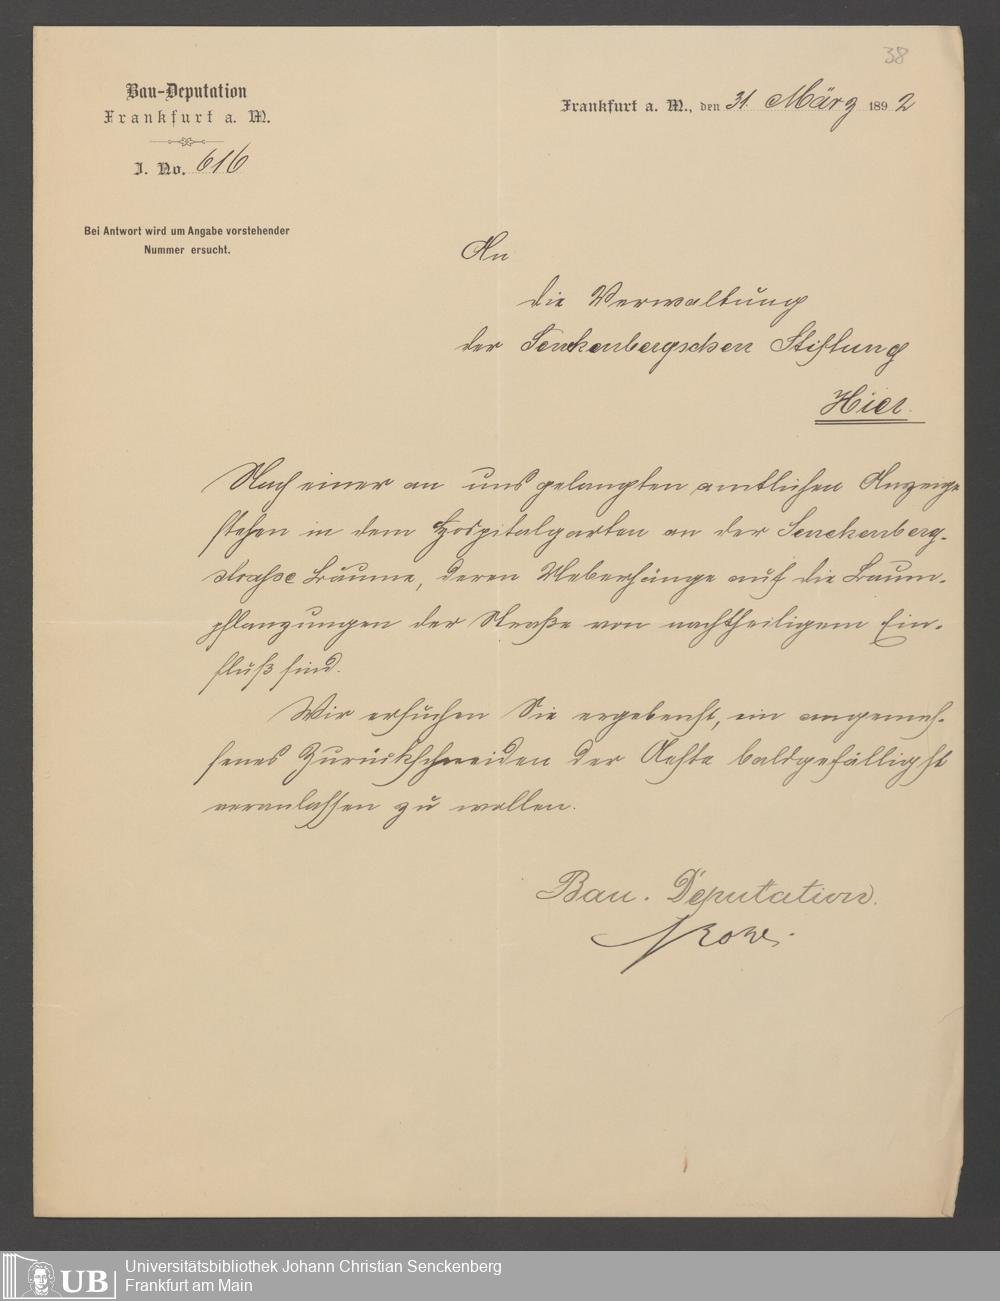 38
Bau-Deputation
Frankfurt a. M.
J. No. 616
Bei Antwort wird um Angabe vorstehender
Nummer ersucht.
Frankfurt a. M., den 31. März 1892
An
die Verwaltung
der Senckenbergschen Stiftung
Hier.
Nach einer an uns gelangten amtlichen Anzeige
stehen in dem Hospitalgarten an der Senckenberg-
straße Bäume, deren Ueberhänge auf die Baum-
pflanzungen der Straße von nachtheiligem Ein-
fluß sind.
Wir ersuchen Sie ergebenst, ein angemes-
senes Zurückschneiden der Aeste baldgefälligst
veranlassen zu wollen.
Bau-Deputation.
UB
Universitätsbibliothek Johann Christian Senckenberg
Frankfurt am Main